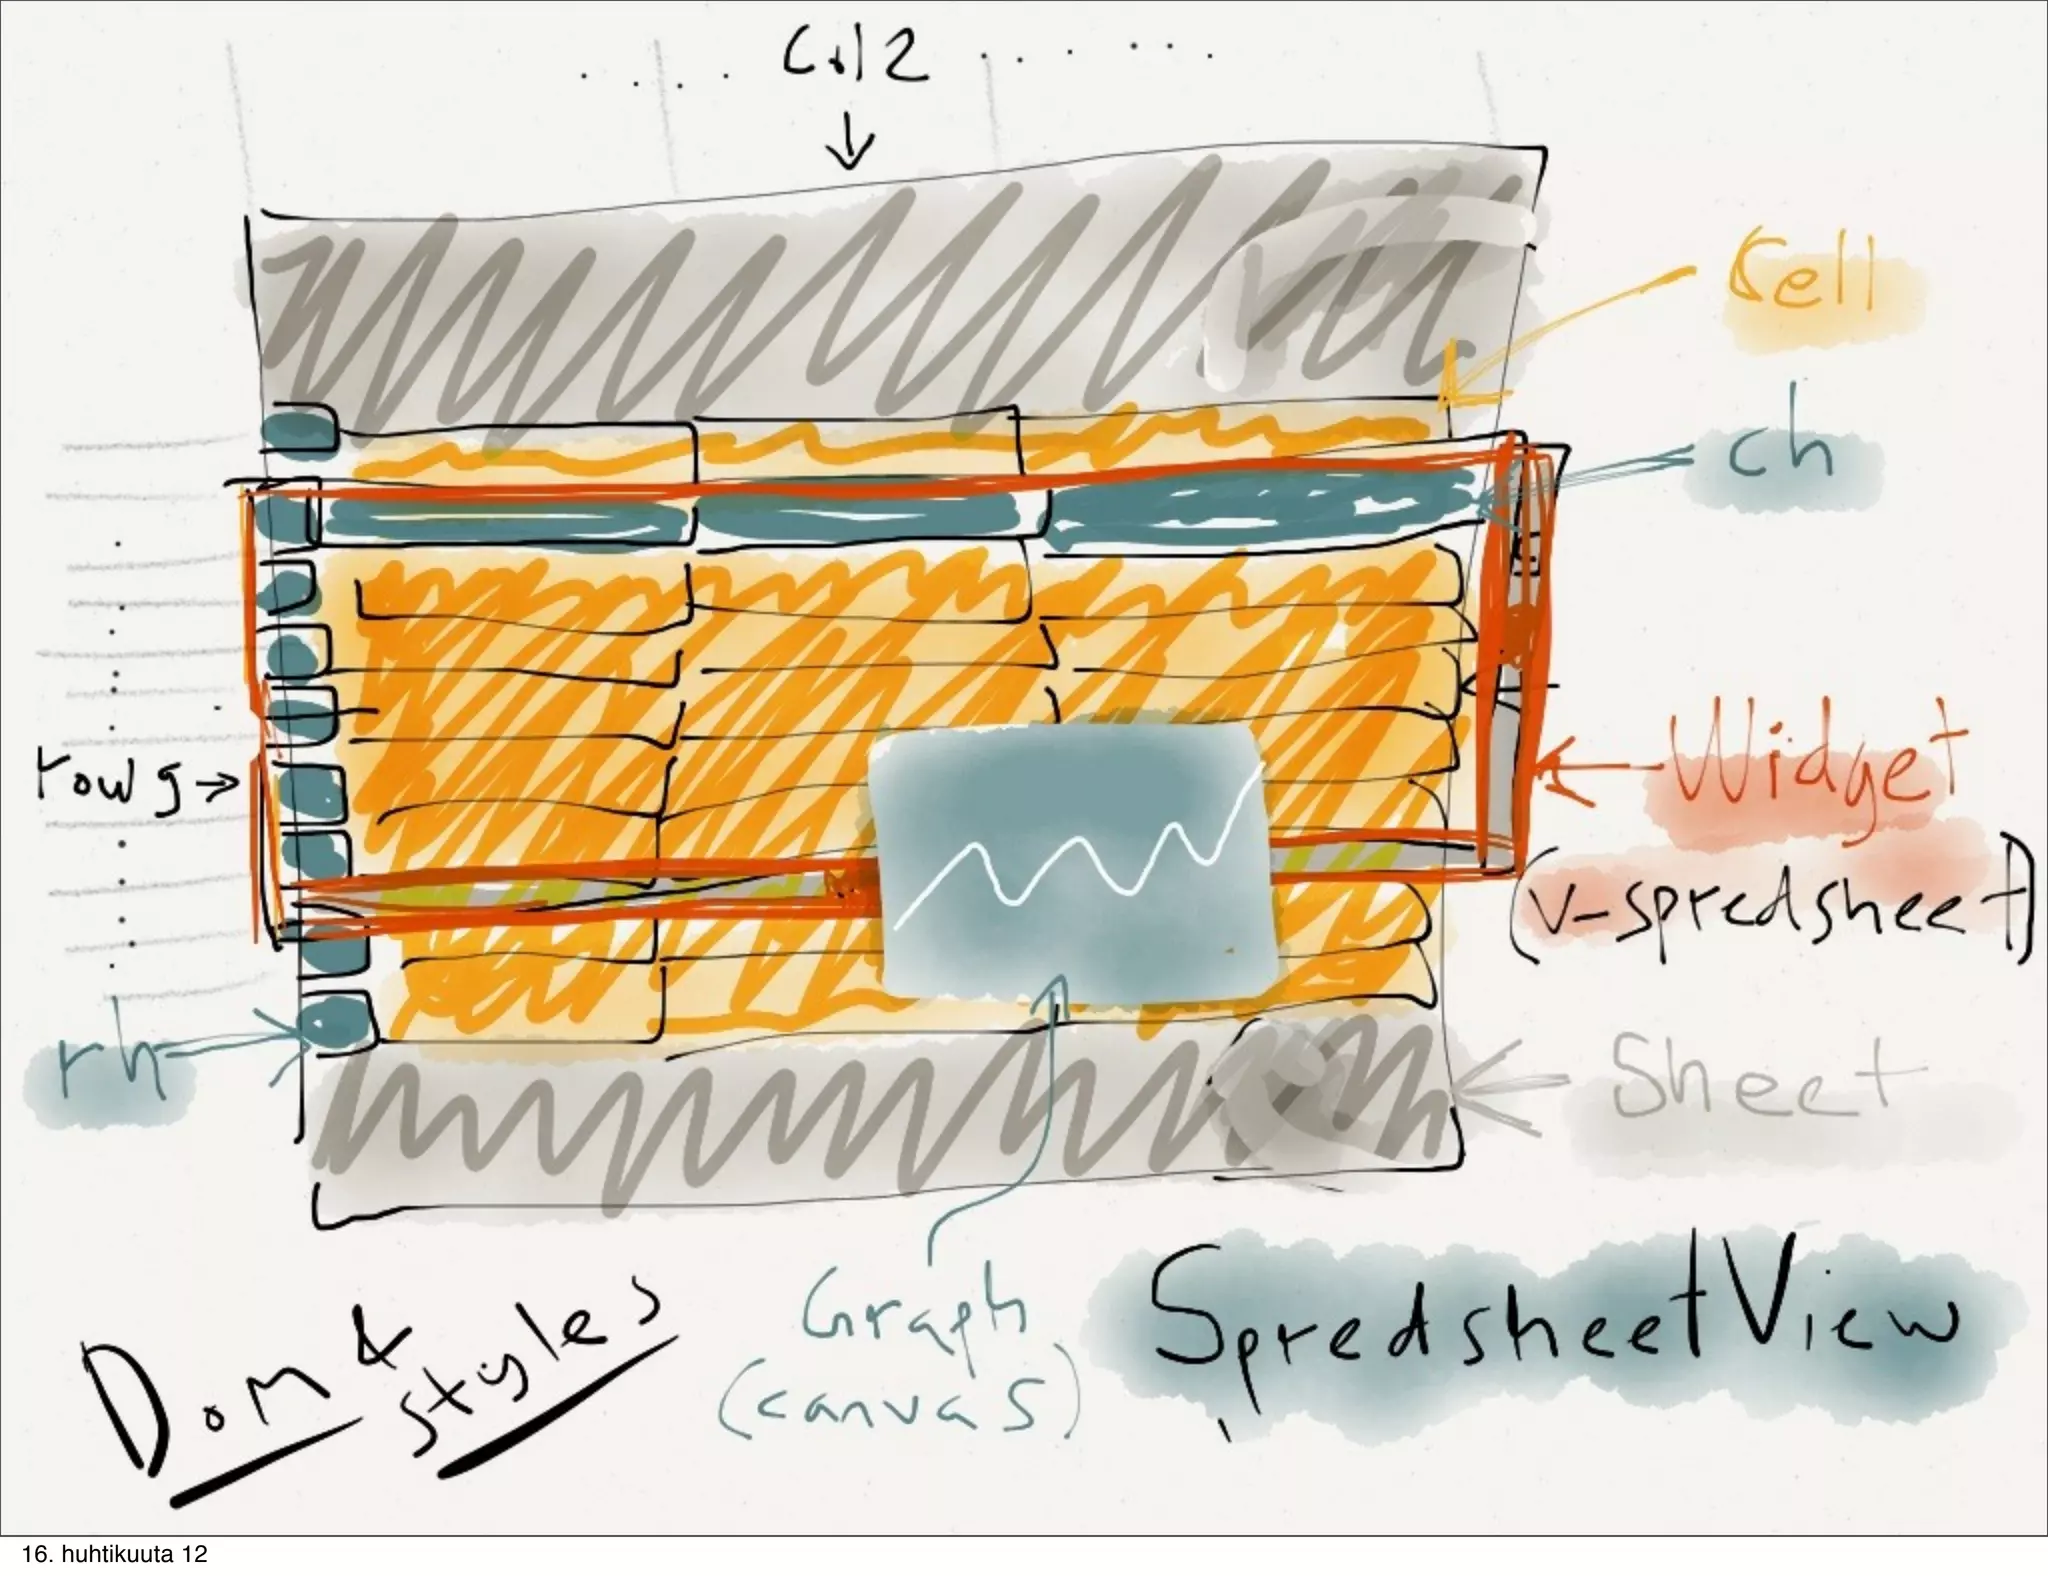 ..... Col2 ......
cell
ch
row5
Widget
(v-spredsheet)
rh
Sheet
Graph
(canvas)
Dom &
styles
SpredsheetView
16. huhtikuuta 12